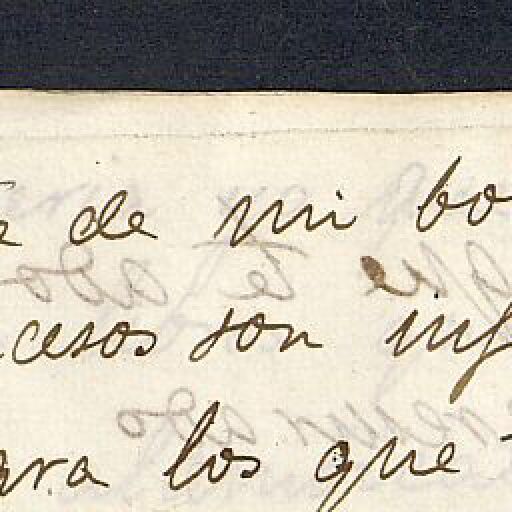 de mi bo
cesos son inf
ara los que